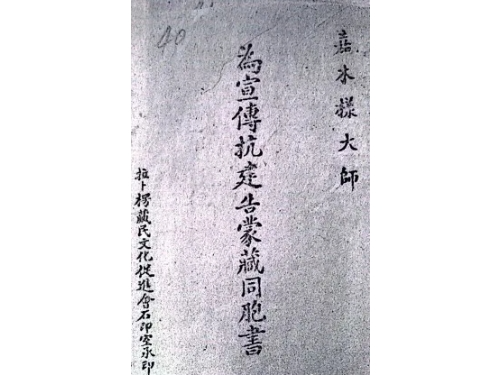 嘉木様大師
為宣傳抗建告蒙藏同胞書
拉卜楞藏民文化促進會石印室承印
40